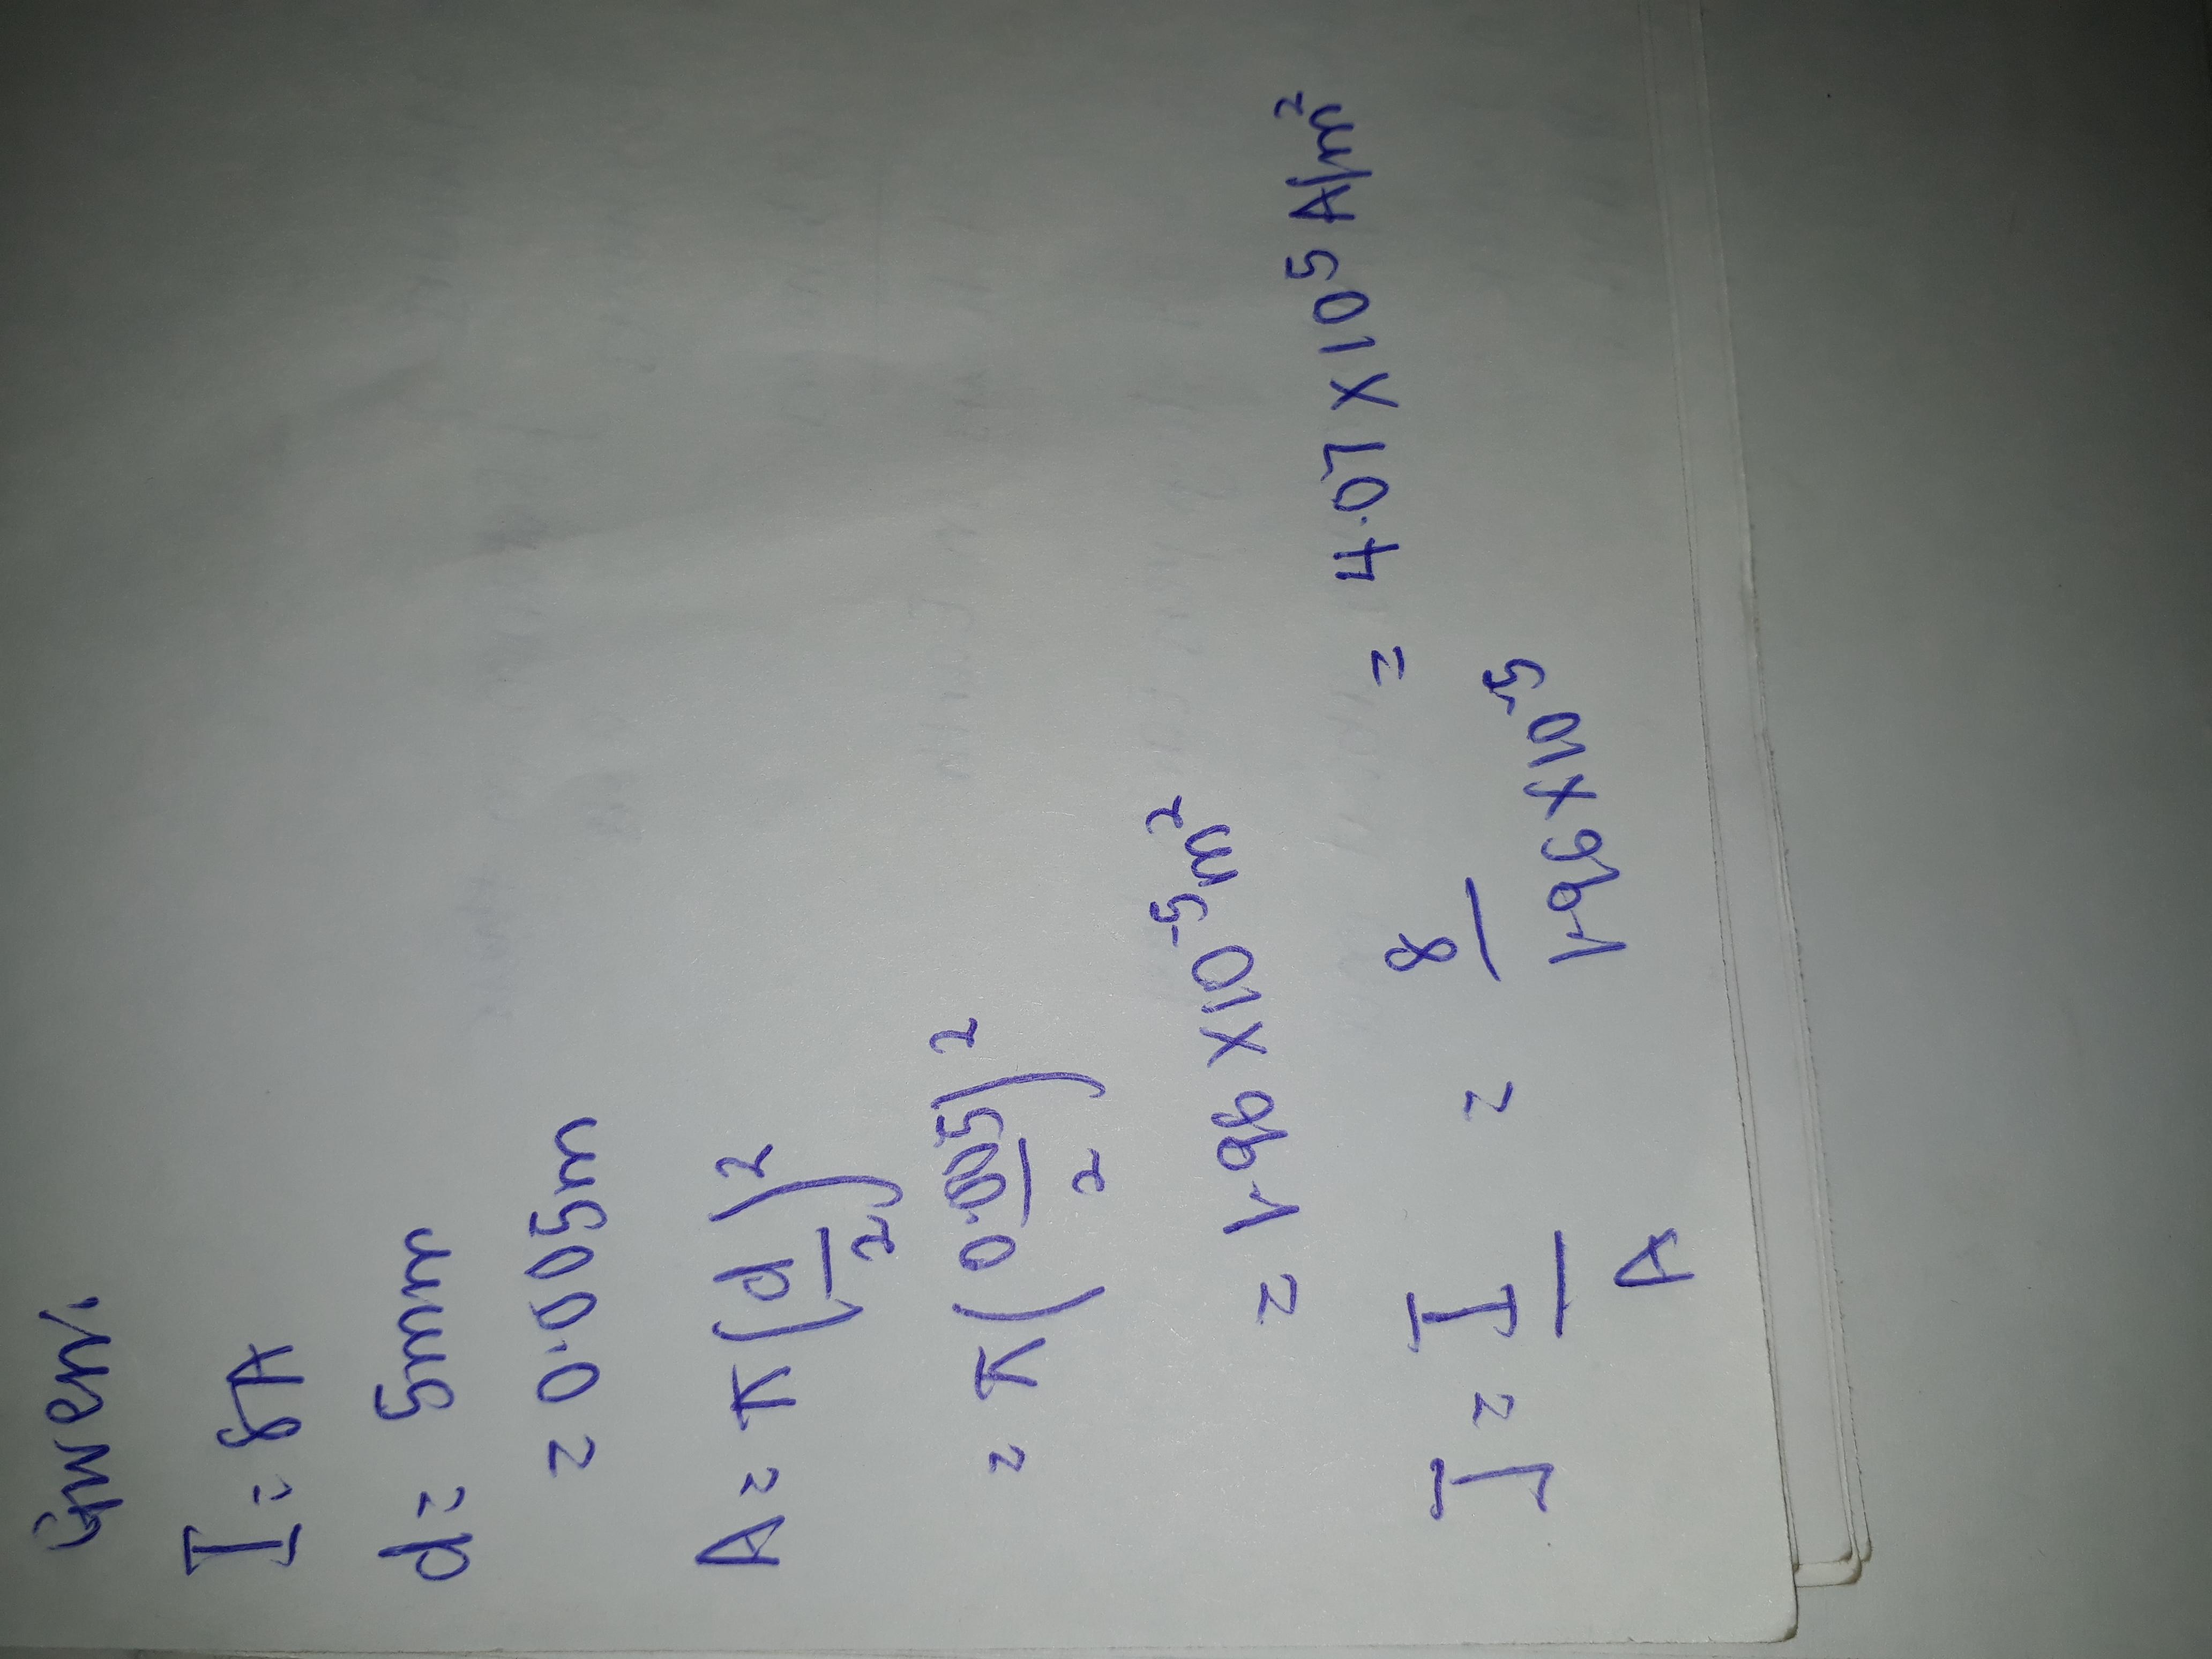 Given:
I = 8A
d = 5mm
= 0.005m
A = π(d/2)²
= π(0.005/2)²
= 1.96 X 10⁻⁵ m²
J = I/A = 8/1.96 X 10⁻⁵ = 4.07 X 10⁵ A/m²